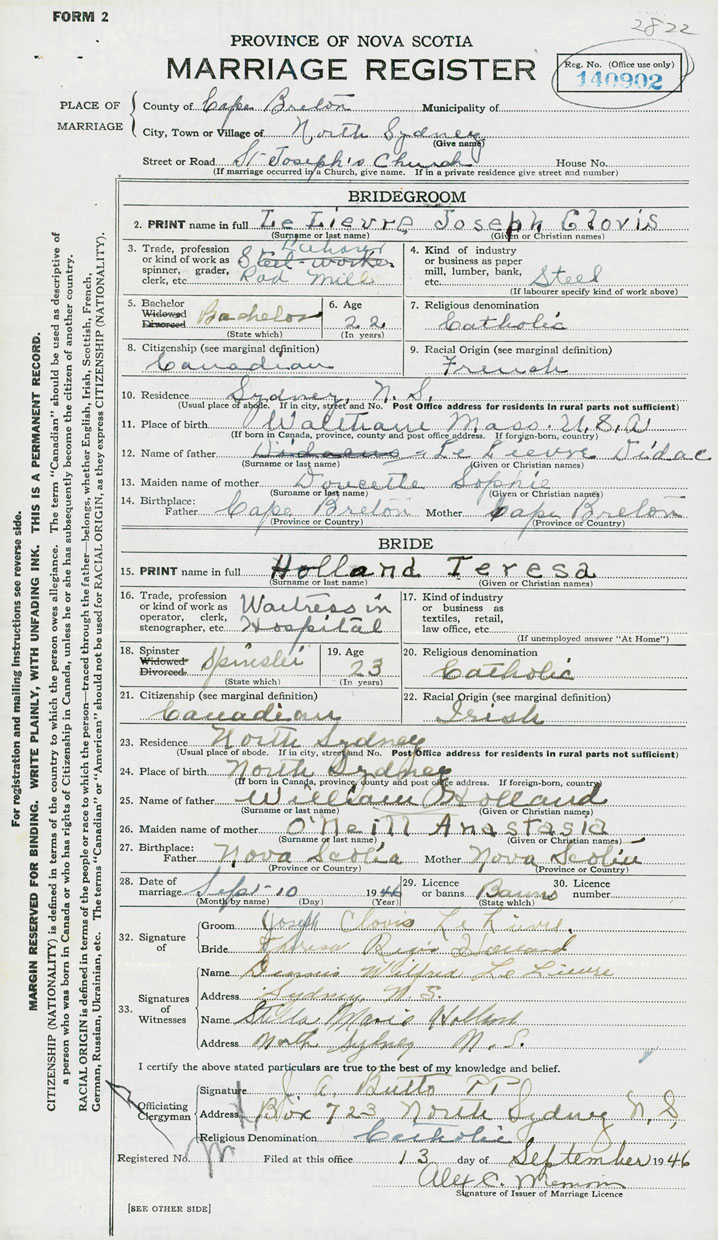 FORM 2
2822
PROVINCE OF NOVA SCOTIA
MARRIAGE REGISTER
Reg. No. (Office use only)
140902
PLACE OF MARRIAGE
County of Cape Breton Municipality of
City, Town or Village of North Sydney
(Give name)
Street or Road St Joseph's Church House No.
(If marriage occurred in a Church, give name. If in a private residence give street and number)
BRIDEGROOM
2. PRINT name in full Le Lievre Joseph Clovis
(Surname or last name) (Given or Christian names)
3. Trade, profession or kind of work as spinner, grader, clerk, etc. Steel worker Rod Mill
4. Kind of industry or business as paper mill, lumber, bank, etc. Steel
(If labourer specify kind of work above)
5. Bachelor Widowed Divorced Bachelor
(State which)
6. Age 22
(In years)
7. Religious denomination
Catholic
8. Citizenship (see marginal definition)
Canadian
9. Racial Origin (see marginal definition)
French
10. Residence Sydney, N.S.
(Usual place of abode. If in city, street and No. Post Office address for residents in rural parts not sufficient)
11. Place of birth Waltham Mass. U.S.A
(If born in Canada, province, county and post office address. If foreign-born, country)
12. Name of father Le Lievre Vidac
(Surname or last name) (Given or Christian names)
13. Maiden name of mother Doucette Sophie
(Surname or last name) (Given or Christian names)
14. Birthplace: Father Cape Breton Mother Cape Breton
(Province or Country) (Province or Country)
BRIDE
15. PRINT name in full Holland Teresa
(Surname or last name) (Given or Christian names)
16. Trade, profession or kind of work as operator, clerk, stenographer, etc. Waitress in Hospital
17. Kind of industry or business as textiles, retail, law office, etc.
(If unemployed answer "At Home")
18. Spinster Widowed Divorced Spinster
(State which)
19. Age 23
(In years)
20. Religious denomination
Catholic
21. Citizenship (see marginal definition)
Canadian
22. Racial Origin (see marginal definition)
Irish
23. Residence North Sydney
(Usual place of abode. If in city, street and No. Post Office address for residents in rural parts not sufficient)
24. Place of birth North Sydney
(If born in Canada, province county and post office address. If foreign-born, country)
25. Name of father William Holland
(Surname or last name) (Given or Christian names)
26. Maiden name of mother O'Neill Anastasia
(Surname or last name) (Given or Christian names)
27. Birthplace: Father Nova Scotia Mother Nova Scotia
(Province or Country) (Province or Country)
28. Date of marriage Sept-10 1946
(Month by name) (Day) (Year)
29. Licence or banns Banns
(State which)
30. Licence number
32. Signature of
Groom Joseph Clovis Le Lievre.
Bride Theresa Regis Holland
33. Signatures of Witnesses
Name Dennis Wilfred Le Lievre
Address Sydney N.S.
Name Stella Marie Holland
Address North Sydney N.S.
I certify the above stated particulars are true to the best of my knowledge and belief.
Officiating Clergyman
Signature J. A. Butts PP
Address Box 723 North Sydney N.S,
Religious Denomination Catholic
Registered No. Filed at this office 13 day of September 1946
Alex C.
Signature of Issuer of Marriage Licence
[SEE OTHER SIDE]
For registration and mailing instructions see reverse side.
MARGIN RESERVED FOR BINDING. WRITE PLAINLY, WITH UNFADING INK. THIS IS A PERMANENT RECORD.
CITIZENSHIP (NATIONALITY) is defined in terms of the country to which the person owes allegiance. The term "Canadian" should be used as descriptive of
a person who was born in Canada or who has rights of Citizenship in Canada, unless he or she has subsequently become the citizen of another country.
RACIAL ORIGIN is defined in terms of the people or race to which the person—traced through the father—belongs, whether English, Irish, Scottish, French,
German, Russian, Ukrainian, etc. The terms "Canadian" or "American" should not be used for RACIAL ORIGIN, as they express CITIZENSHIP (NATIONALITY).